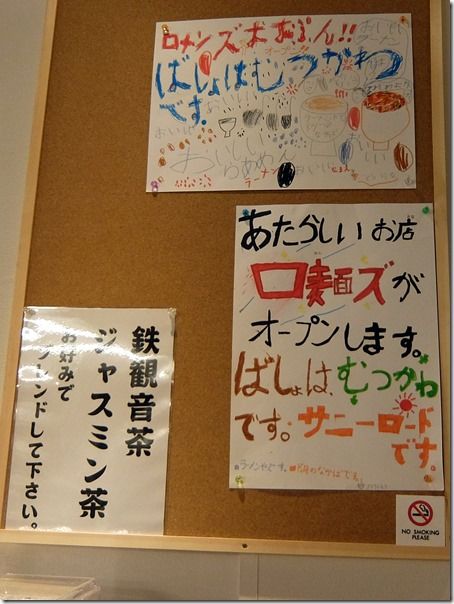 ロメンズ大おーぷん!!
ばしょはむつかわ
です。
おいしい
らぁめん
ラーメン
あたらしいお店
口麺ズが
オープンします。
ばしょは、むつかわ
です。サニーロード
です。
ラーメンやです。
鉄観音茶
ジャスミン茶
お好みで
ブレンドして下さい。
NO SMOKING
PLEASE